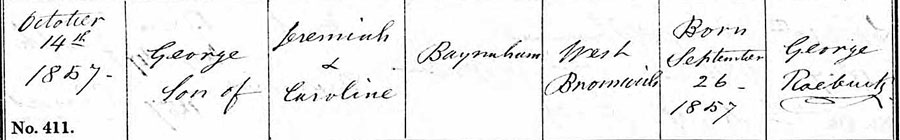 October
14th
1857-
No. 411.
George
Son of
Jeremiah
&
Caroline
Baynham
West
Bromwich
Born
September
26-
1857
George
Roebuck